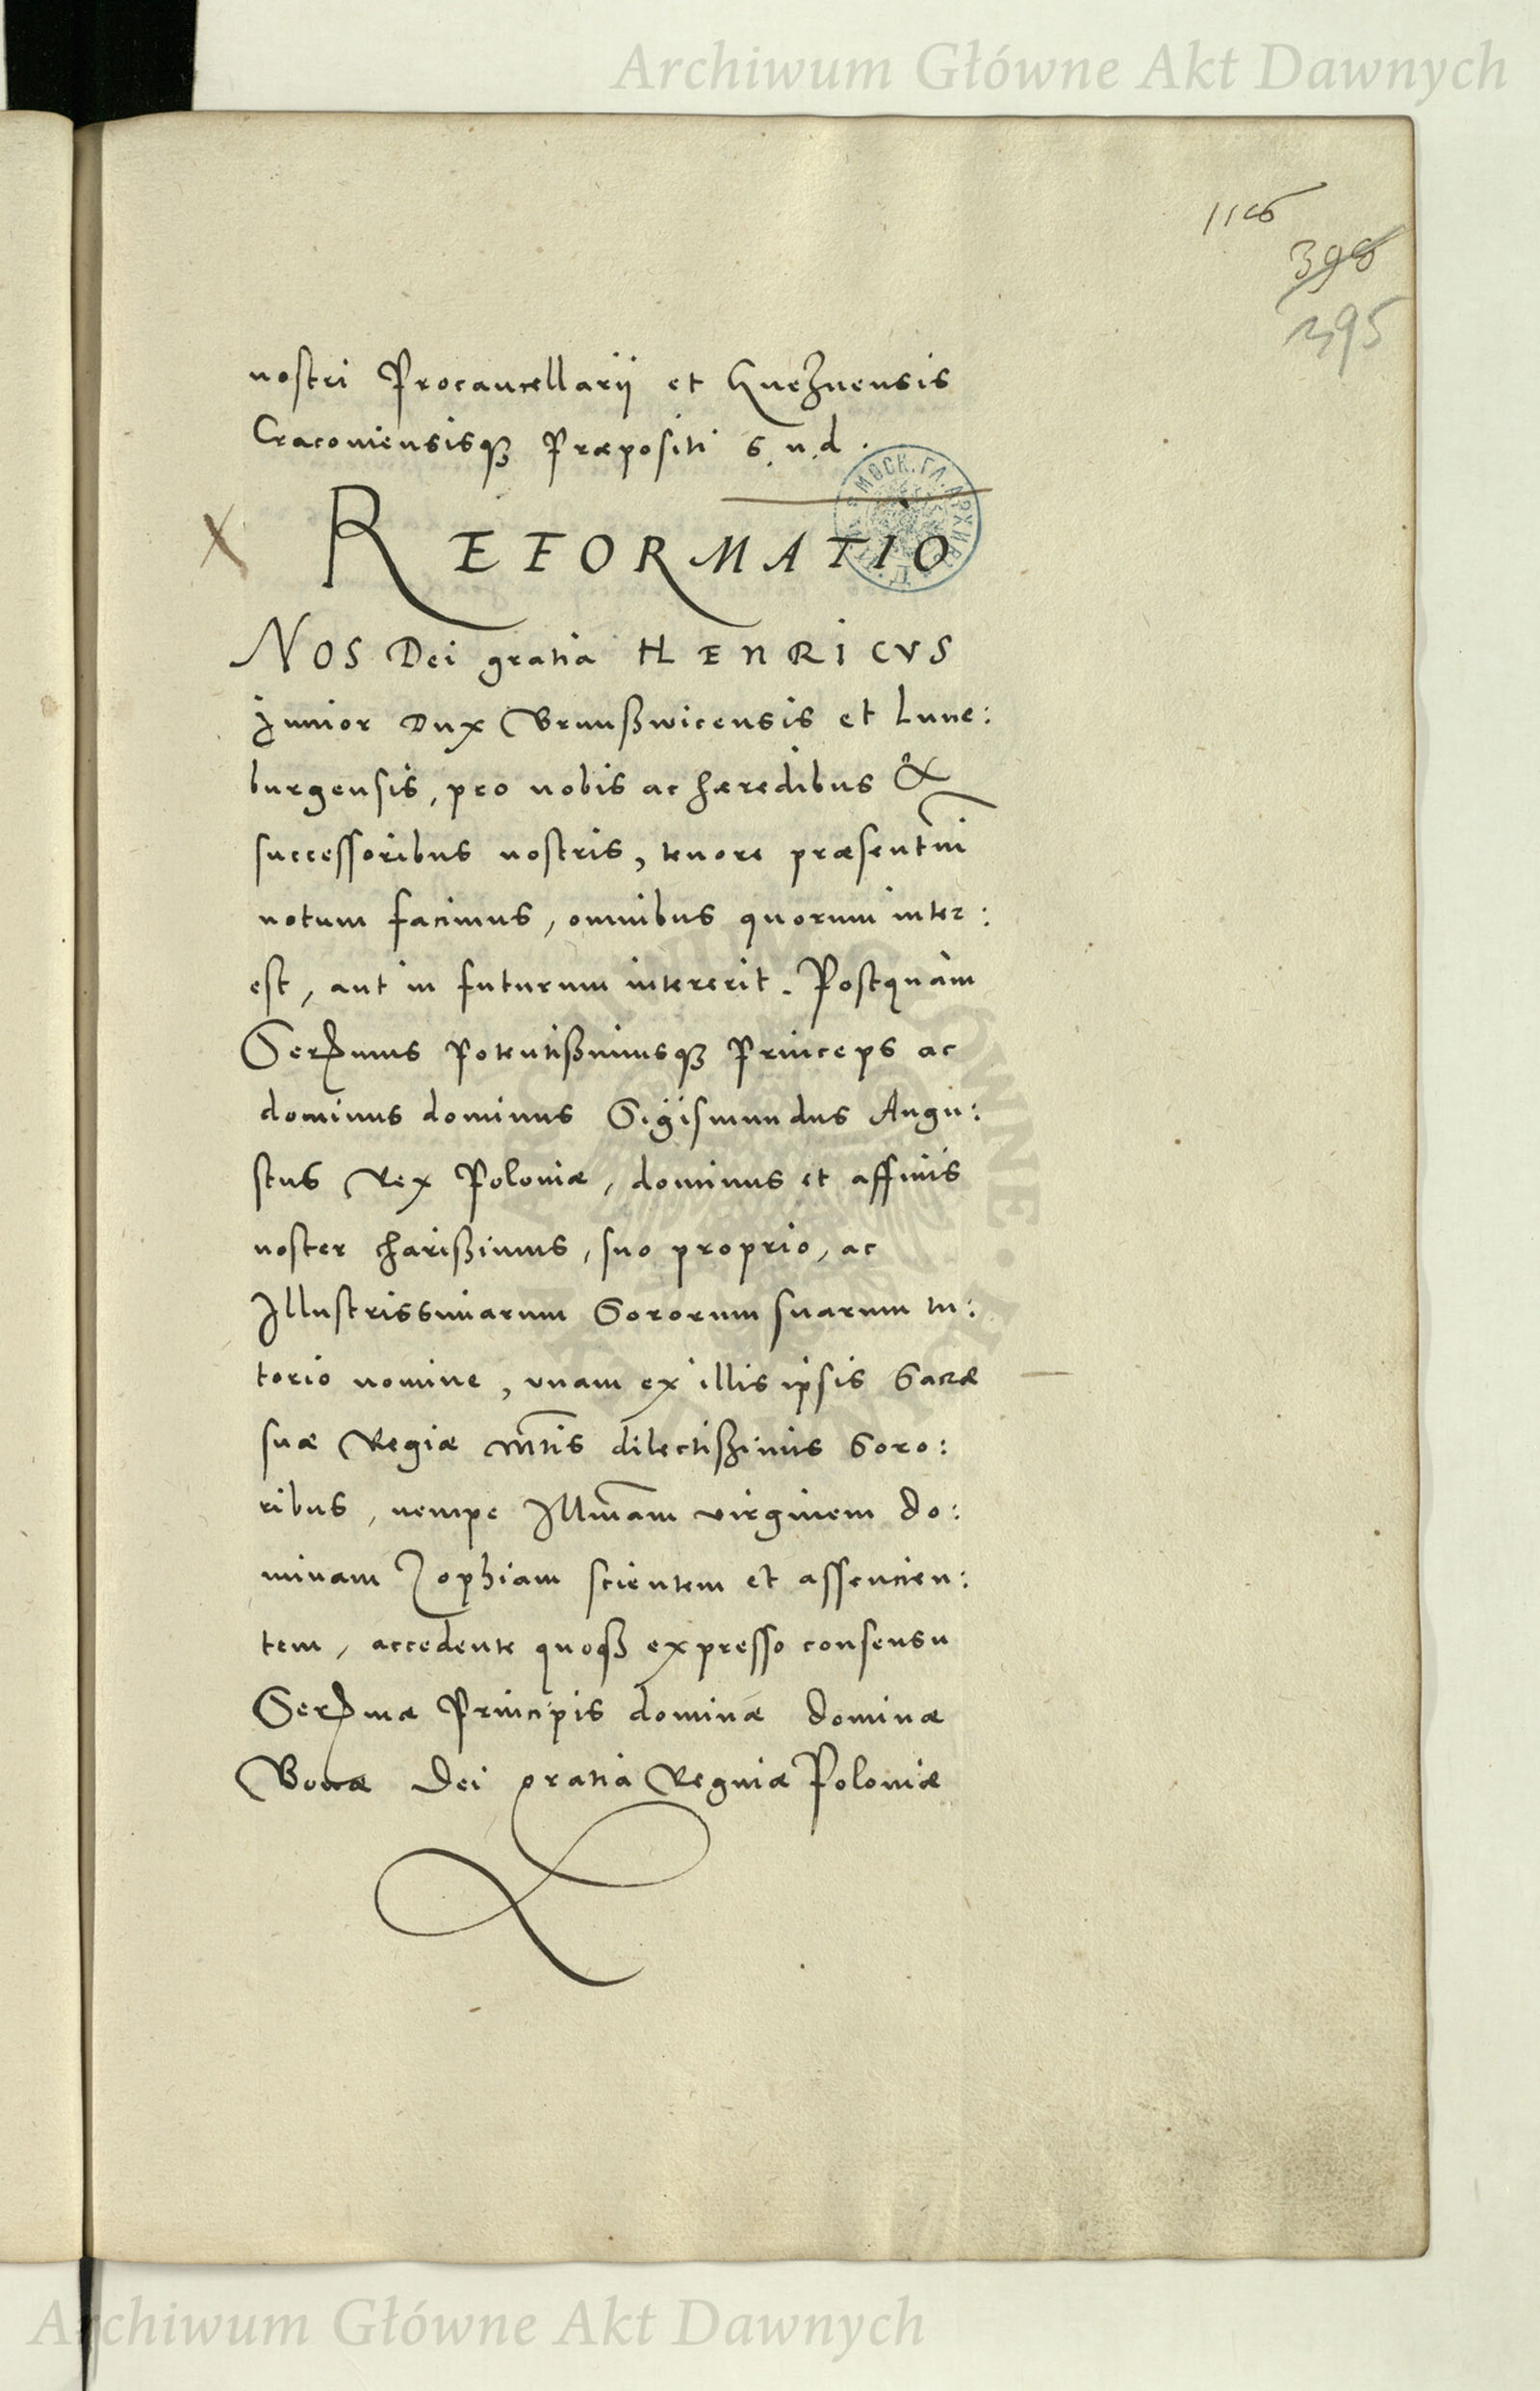 Archiwum Główne Akt Dawnych
398
395
nostri Procancellarij et Gneznensis
Cracoviensisqȝ Præpositi s. n. d.
X REFORMATIO
NOS Dei gratia HENRICVS
Junior Dux Brunßwicensis et Lune:
burgensis, pro nobis ac hæredibus &
successoribus nostris, tenore præsentiū
notum facimus, omnibus quorum inter:
est, aut in futurum intererit. Postquàm
Serᵐus Potentißimusqȝ Princeps ac
dominus dominus Sigismundus Augu:
stus Rex Poloniæ, dominus et affinis
noster charißimus, suo proprio, ac
Illustrissimarum Sororum suarum tu:
torio nomine, vnam ex illis ipsis Sacræ
suæ Regiæ Mtis dilectißimis Soro:
ribus, nempe Illmam virginem do:
minam Zophiam scientem et assencien:
tem, accedente quoqȝ expresso consensu
Serᵐæ Principis dominæ dominæ
Bonæ Dei gratia Reginæ Poloniæ
Archiwum Główne Akt Dawnych